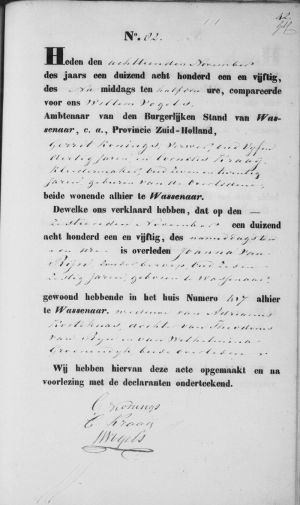 42.
N°. 82.
Heden den achttienden November
des jaars een duizend acht honderd een en vijftig,
des Na middags ten half een ure, compareerde
voor ons Willem Vogels.
Ambtenaar van den Burgerlijken Stand van Was-
senaar, c. a., Provincie Zuid-Holland,
Gerrit Konings, oud vijf en
dertig jaren en Cornelis Kraag
Kleedermaker, oud en twintig
jaren geburen van de Overledene
beide wonende alhier te Wassenaar.
Dewelke ons verklaard hebben, dat op den —
November een duizend
acht honderd een en vijftig, des namiddags ten
een ure is overleden Joanna van
Rijn, zonder beroep, oud
zestig jaren, geboren te Wassenaar
gewoond hebbende in het huis Numero 107 alhier
te Wassenaar. weduwe van Adrianus
dochter van Theodorus
van Rijn en van Wilhelmina
Groenewegh beide overleden
Wij hebben hiervan deze acte opgemaakt en na
voorlezing met de declaranten onderteekend.
G Konings
C Kraag
WVogels